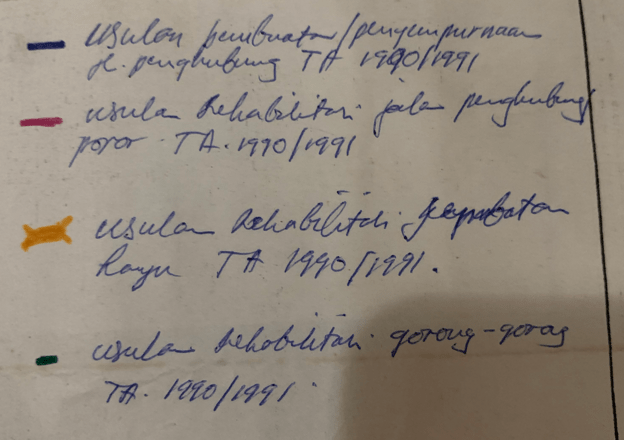 usulan pembuatan/penyempurnaan
jl. penghubung TA 1990/1991
usulan Rehabilitasi jalan penghubung/
poros TA. 1990/1991
usulan Rehabilitasi jembatan
kayu TA 1990/1991.
usulan Rehabilitasi gorong-gorong
TA. 1990/1991.